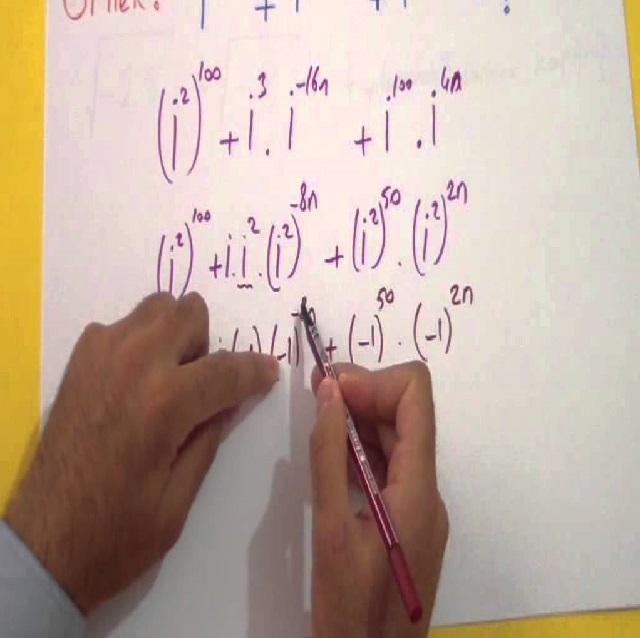 Örnek: i + i + i ?
(i²)¹⁰⁰ + i³ . i⁻¹⁶ⁿ + i¹⁰⁰ . i⁴ⁿ
(i²)¹⁰⁰ + i.i² . (i²)⁻⁸ⁿ + (i²)⁵⁰ . (i²)²ⁿ
(-1) + (-1)⁵⁰ . (-1)²ⁿ